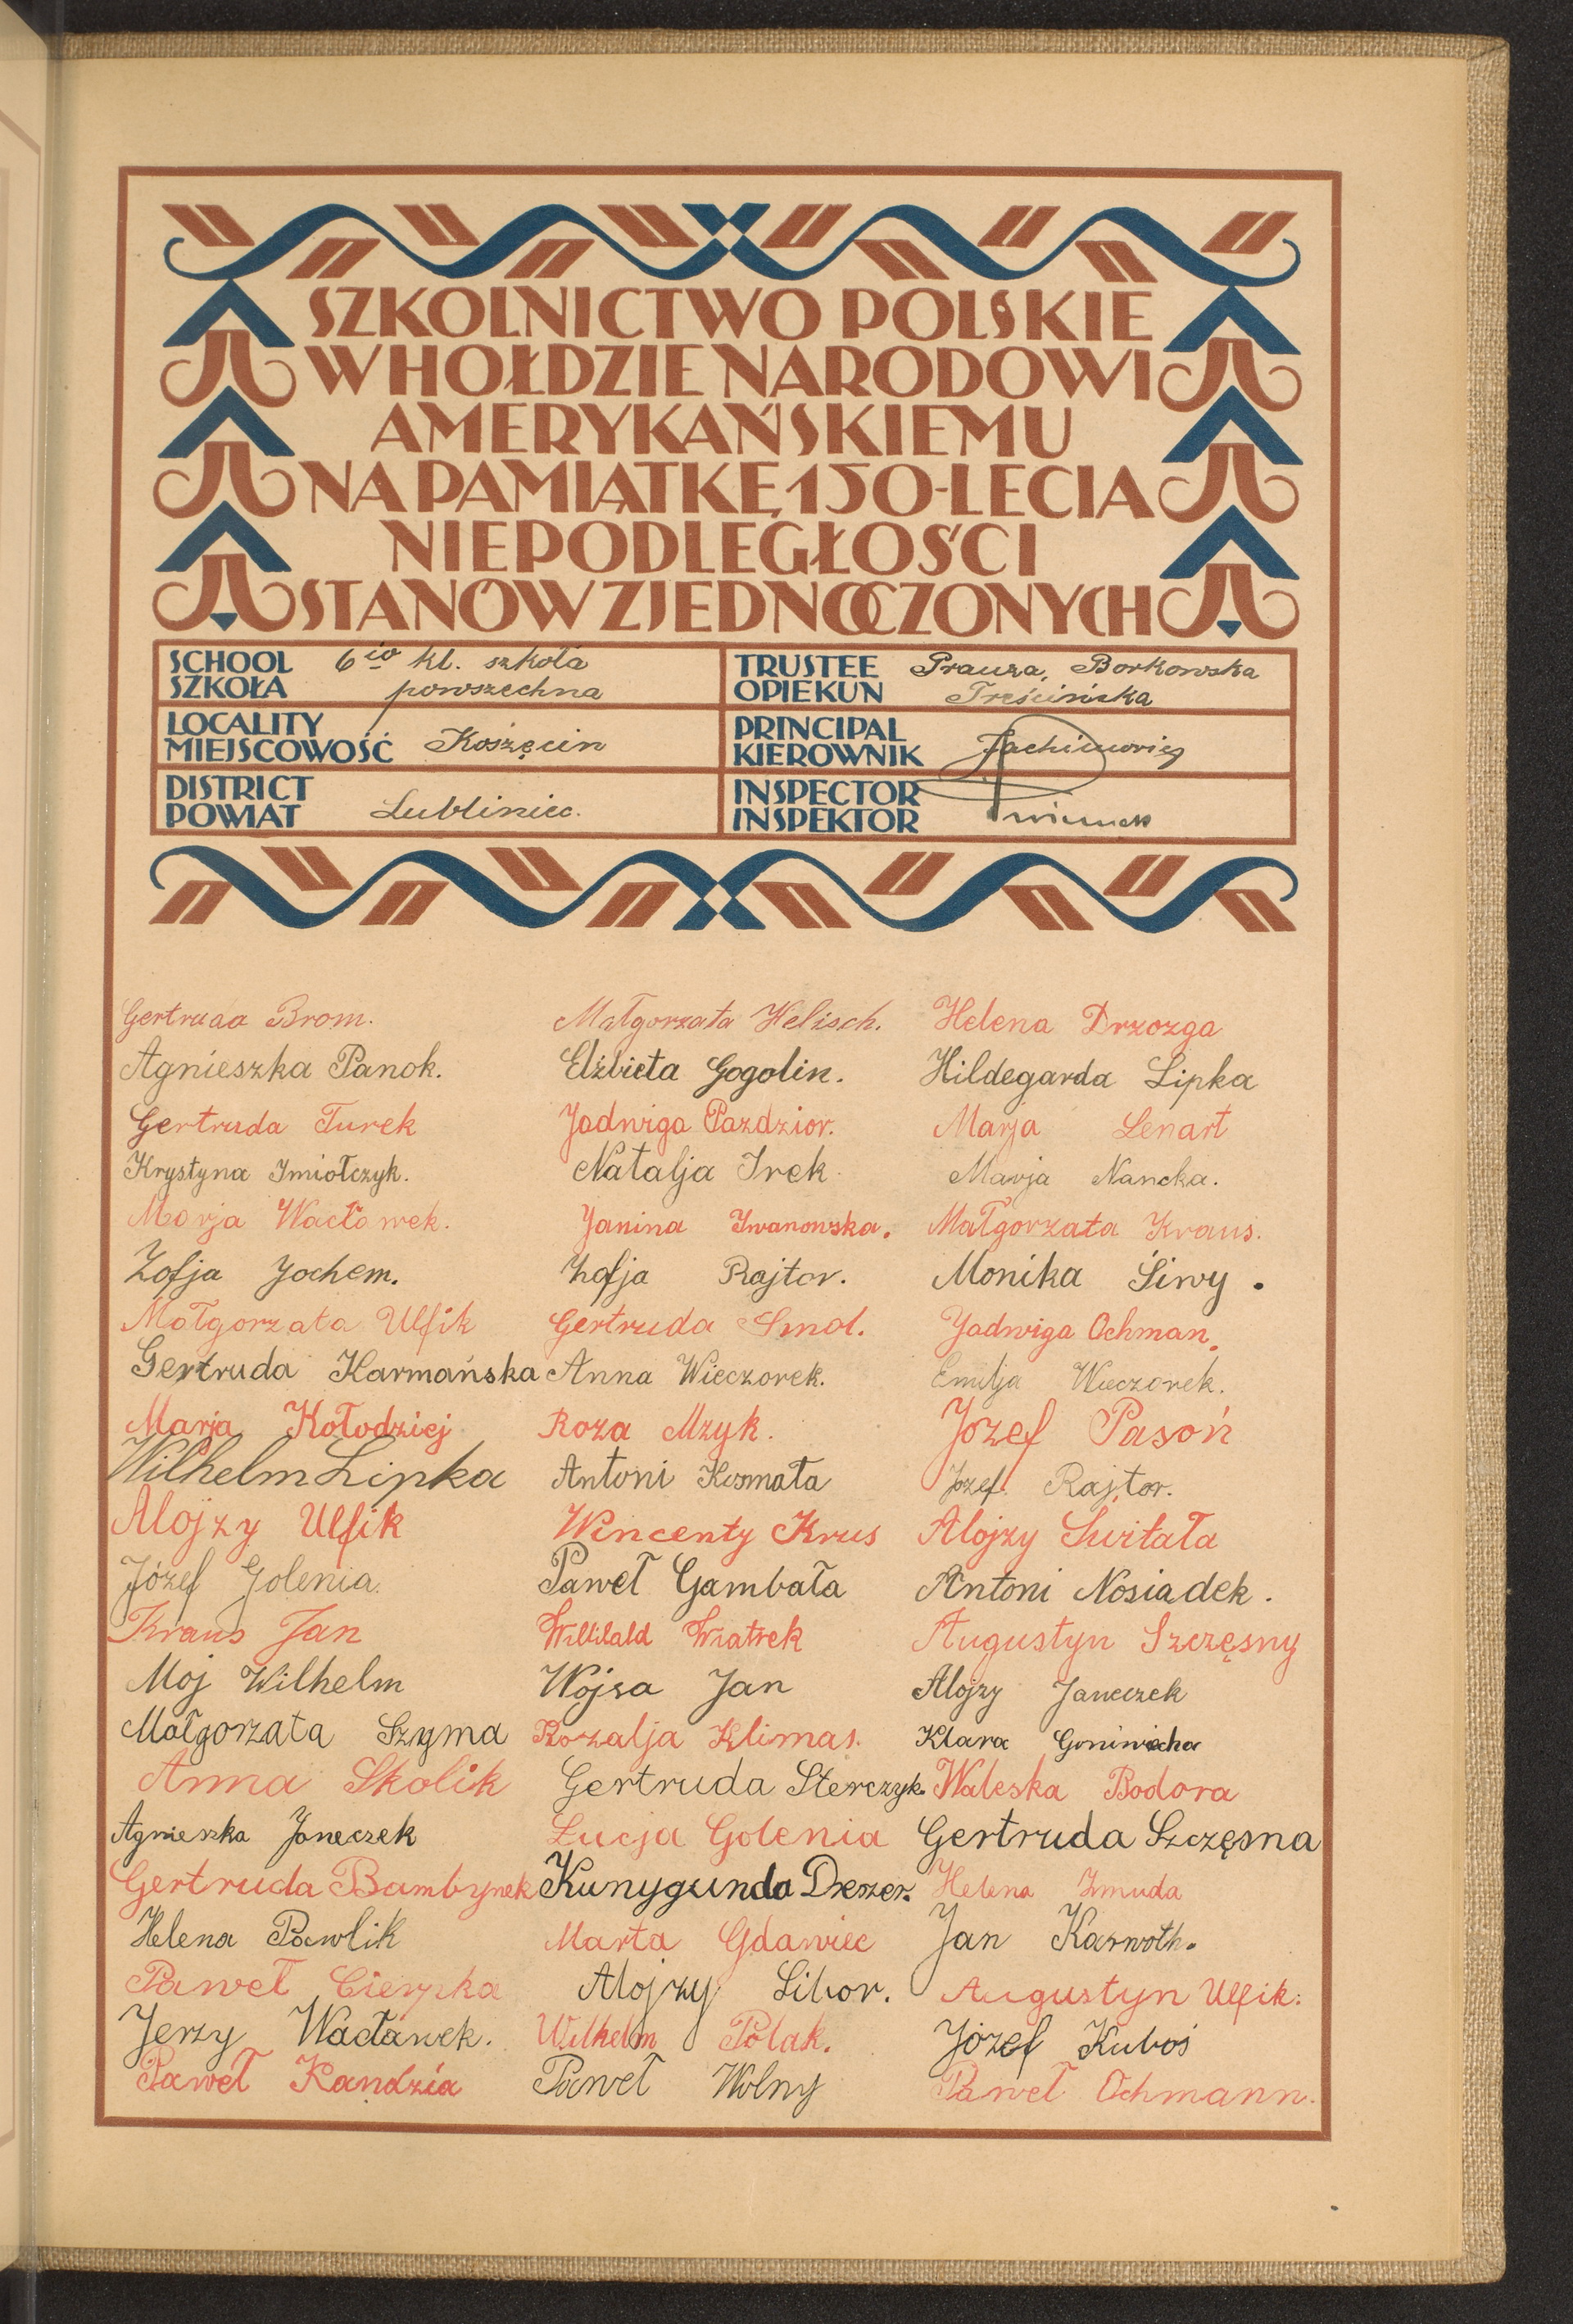 SZKOLNICTWO POLSKIE
W HOŁDZIE NARODOWI
AMERYKAŃSKIEMU
NA PAMIĄTKĘ 150-LECIA
NIEPODLEGŁOŚCI
STANÓW ZJEDNOCZONYCH
SCHOOL SZKOŁA 6io kl. szkoła powszechna
TRUSTEE OPIEKUN Prauza, Borkowska Treścińska
LOCALITY MIEJSCOWOŚĆ Koszęcin
PRINCIPAL KIEROWNIK Jachimowicz
DISTRICT POWIAT Lubliniec.
INSPECTOR INSPEKTOR
Gertruda Brom. Małgorzata Helisch. Helena Drzozga
Agnieszka Panok. Elżbieta Gogolin. Hildegarda Lipka
Gertruda Turek Jadwiga Pazdzior. Marja Lenart
Krystyna Imiołczyk. Natalja Irek Marja Nancka.
Marja Wacławek. Janina Iwanowska. Małgorzata Kraus.
Zofja Jochem. Zofja Rajtor. Monika Siwy.
Małgorzata Ulfik Gertruda Smol. Jadwiga Ochman.
Gertruda Karmańska Anna Wieczorek. Emilja Wieczorek.
Marja Kołodziej Roza Mzyk. Józef Pasoń
Wilhelm Lipka Antoni Kosmała Józef Rajtor.
Alojzy Ulfik Wincenty Krus Alojzy Świtała
Józef Golenia. Paweł Gambała Antoni Nosiadek.
Kraus Jan Willibald Wiatrek Augustyn Szczęsny
Moj Wilhelm Wojsa Jan Alojzy Janeczek
Małgorzata Szyma Rozalja Klimas. Klara
Anna Skolik Gertruda Sterczyk. Waleska Bodora
Agnieszka Janeczek Łucja Golenia Gertruda Szczęsna
Gertruda Bambynek Kunygunda Drezer. Helena Zmuda
Helena Pawlik Marta Gdawiec Jan Karnoth.
Paweł Cierpka Alojzy Libor. Augustyn Ulfik.
Jerzy Wacławek. Wilhelm Polak. Józef Kuboś
Paweł Kandzia Paweł Wolny Paweł Ochmann.